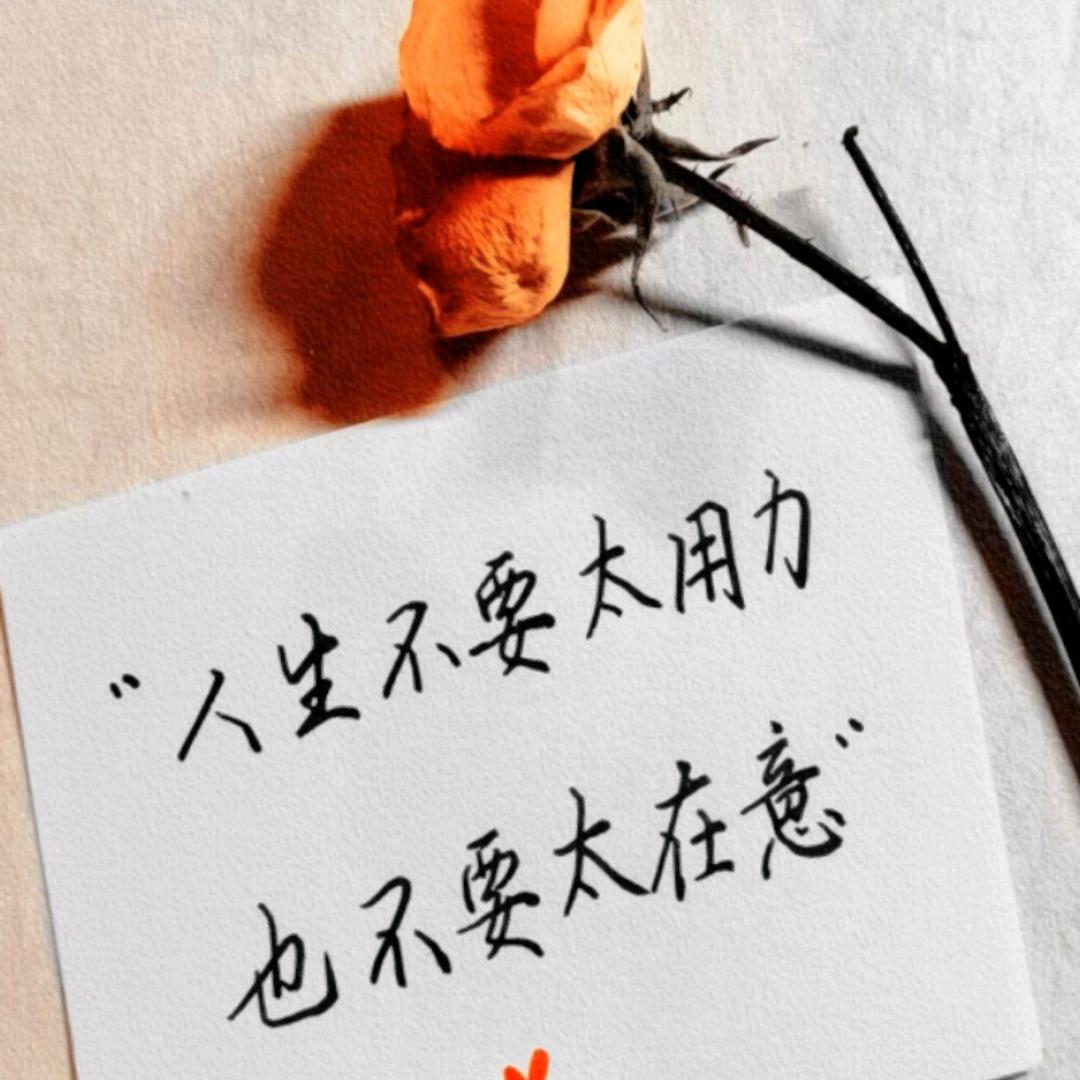 "人生不要太用力
也不要太在意"